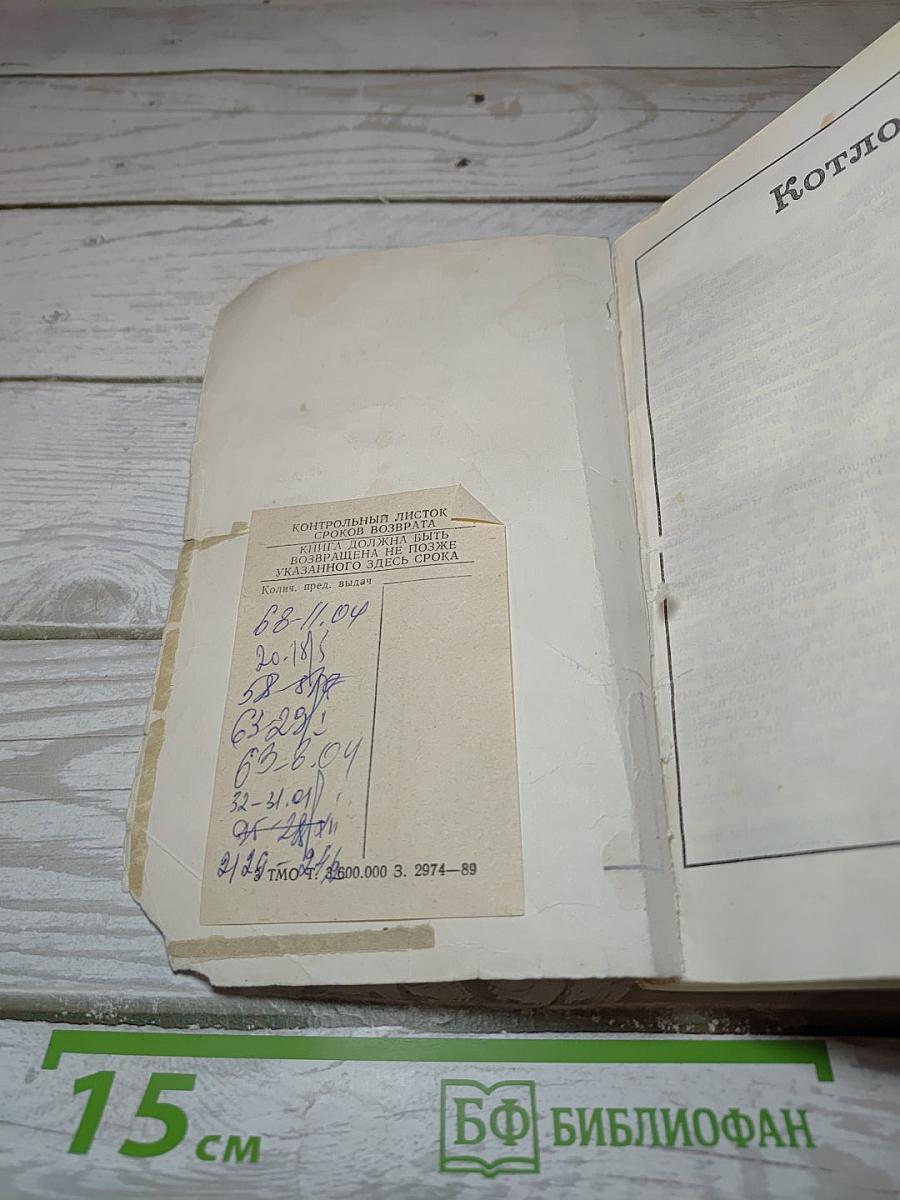 Котло
КОНТРОЛЬНЫЙ ЛИСТОК
СРОКОВ ВОЗВРАТА
КНИГА ДОЛЖНА БЫТЬ
ВОЗВРАЩЕНА НЕ ПОЗЖЕ
УКАЗАННОГО ЗДЕСЬ СРОКА
Колич. пред. выдач
68-11.04
20.18/5
63-29/
63-6.04
32-31.01
3 ТМО Т. 3.600.000 З. 2974—89
15 см
БФ БИБЛИОФАН